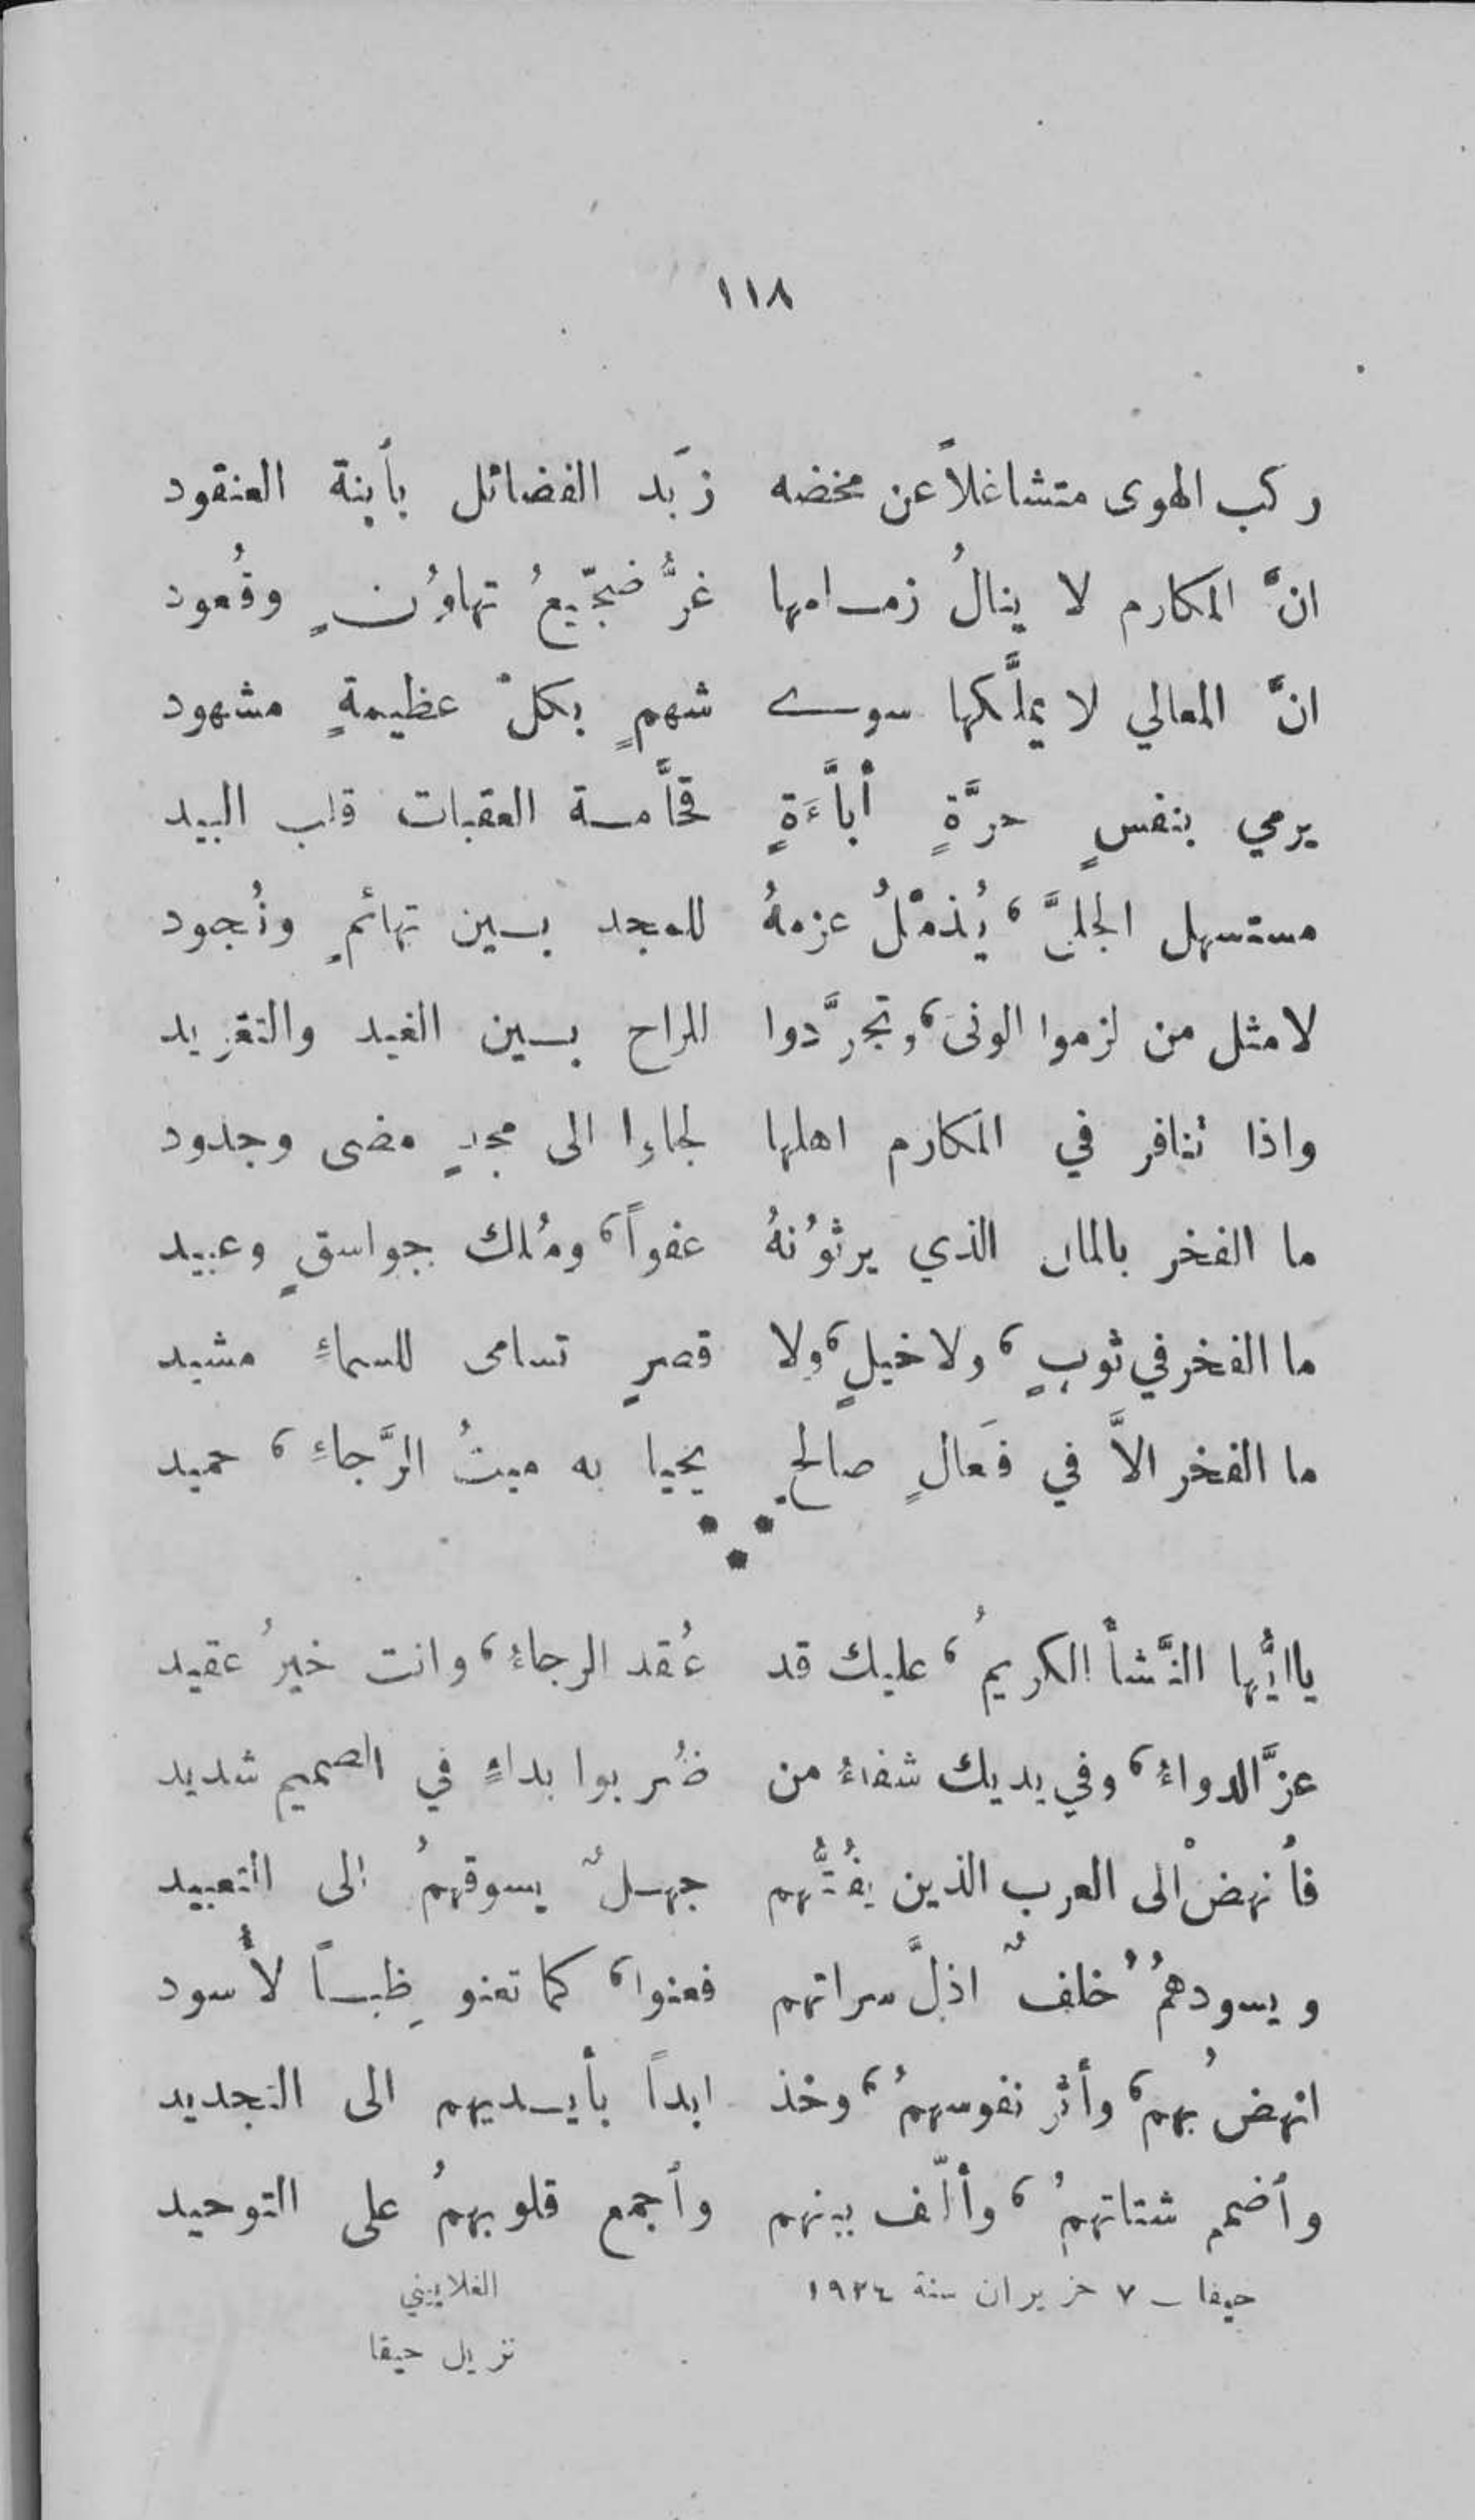 ١١٨
ركب الهوى متشاغلاً عن مخضه زبَد الفضائل بأبنة العنقود
انَّ المكارم لا ينالُ زمامها غرٌّ ضجّيعُ تهاوُنٍ وقُعود
انَّ المعالي لا يملَّكها سوى شهمٍ بكلّ عظيمةٍ مشهود
يرمي بنفسٍ حرَّةٍ أبَّاءَةٍ قحَّامة العقبات قلب البيد
مستسهل الجلىَّ، يُذمّلُ عزمهُ للمجد بين تهائمٍ ونُجود
لا مثل من لزموا الونىَ، وتجرَّدوا للراح بين الغيد والتغريد
واذا تنافر في المكارم اهلها لجاءِا الى مجدٍ مضى وجدود
ما الفخر بالمال الذي يرثوُنهُ عفواً، ومُلك جواسقٍ وعبيد
ما الفخر في ثوبٍ، ولا خيلٍ، ولا قصرٍ تسامى للسماءِ مشيد
ما الفخر الاَّ في فعَالٍ صالحٍ يحيا به ميتُ الرَّجاءِ، حميد
يا ايُّها النَّشأُ الكريمُ، عليك قد عُقد الرجاءُ، وانت خيرُ عقيد
عزَّ الدواءُ، وفي يديك شفاءُ من ضُربوا بداءٍ في الصميم شديد
فأنهضْ الى العرب الذين يفُتُّهم جهلٌ يسوقهمُ الى التعبيد
ويسودهمُ خُلفٌ اذلَّ سراتهم فعنوا، كما تعنو ظِباً لأُسود
انهض بهم، وأثر نفوسهمُ، وخذ ابداً بأيديهم الى التجديد
وأضمم شتاتهمُ، وألّف بينهم وأجمع قلوبهمُ على التوحيد
حيفا ـ ٧ حزيران سنة ١٩٢٤ الغلاييني
نزيل حيفا